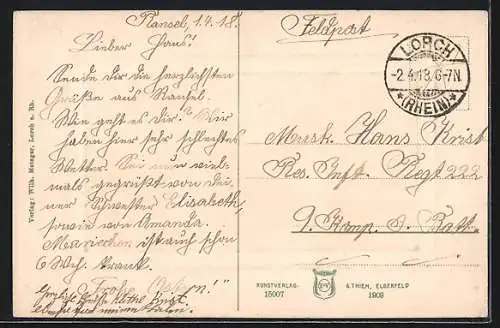 Ransel, 1.4.18.
Lieber Hans!
Sende dir die herzlichsten
Grüße aus Ransel.
Wie geht es dir. Wir
haben hier sehr schlechtes
Wetter. Sei nun viel-
mals gegrüßt von dei-
ner Schwester Elisabeth,
sowie von Amanda.
Mariechen ist auch schon
6 Woch. krank.
Frohe Ostern!
Feldpost
LORCH
-2.4.18.6-7N
*(RHEIN)*
Musk. Hans Krist
Res. Inft. Regt 222
9. Komp. Batt.
Verlag: Wilh. Metzger, Lorch a. Rh.
KUNSTVERLAG
15007
G. THIEM, ELBERFELD
1909